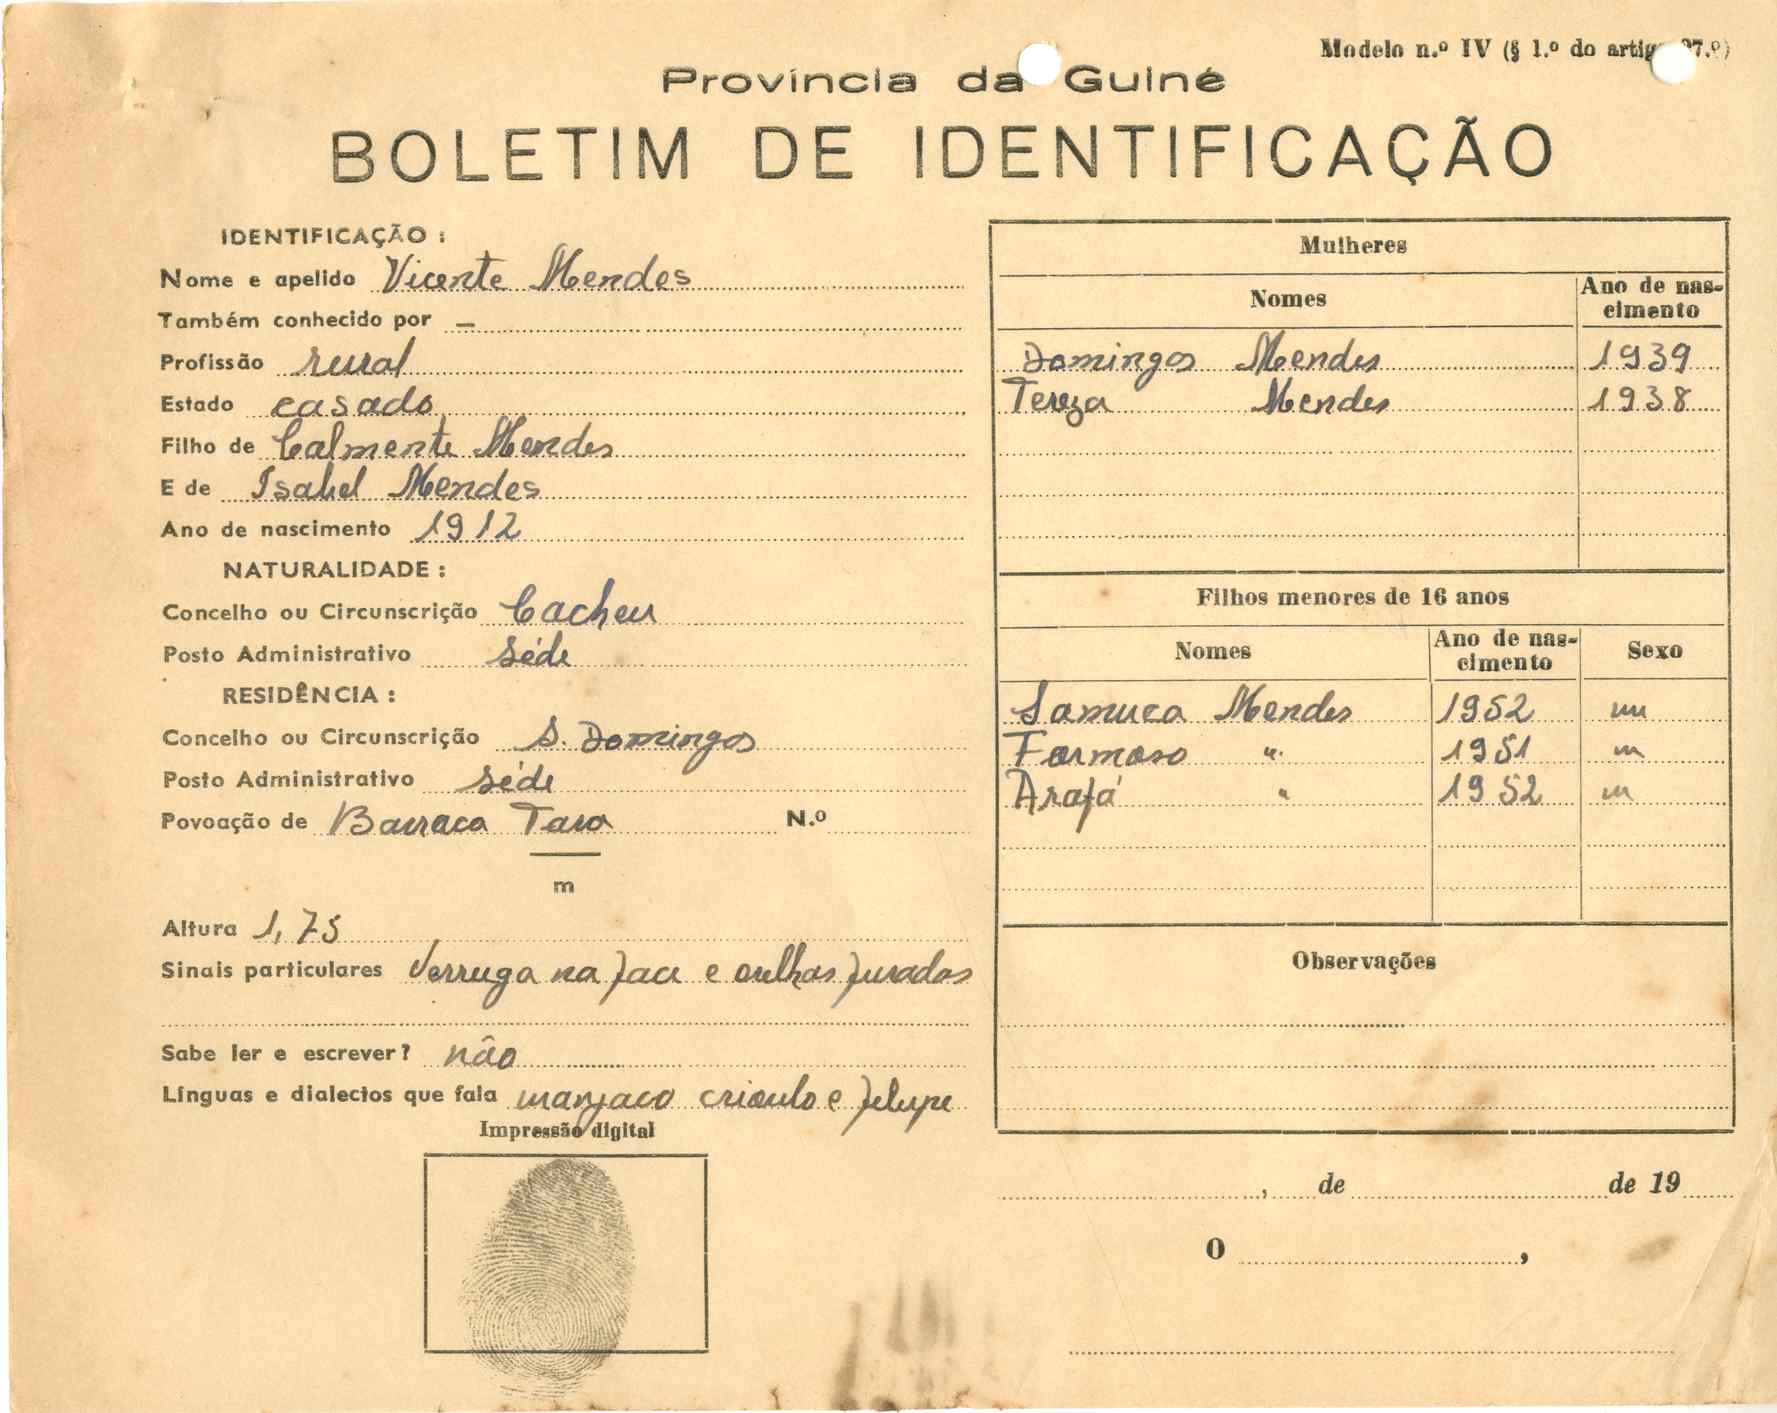 Modelo n.º IV (§ 1.º do artigo 7.º)
Província da Guiné
BOLETIM DE IDENTIFICAÇÃO
IDENTIFICAÇÃO :
Nome e apelido Vicente Mendes
Também conhecido por —
Profissão rural
Estado casado
Filho de Calmente Mendes
E de Isabel Mendes
Ano de nascimento 1912
NATURALIDADE :
Concelho ou Circunscrição Cacheu
Posto Administrativo Séde
RESIDÊNCIA :
Concelho ou Circunscrição S. Domingos
Posto Administrativo Séde
Povoação de Barraca Tara N.º
m
Altura 1,75
Sinais particulares Verruga na face e orelhas furadas
Sabe ler e escrever? não
Línguas e dialectos que fala manjaco crioulo e felupe
Impressão digital
Mulheres
Nomes Ano de nas-
cimento
Domingos Mendes 1939
Tereza Mendes 1938
Filhos menores de 16 anos
Nomes Ano de nas-
cimento Sexo
Samuca Mendes 1952 m
Formoso " 1951 m
Arafá " 1952 m
Observações
, de de 19
O ,